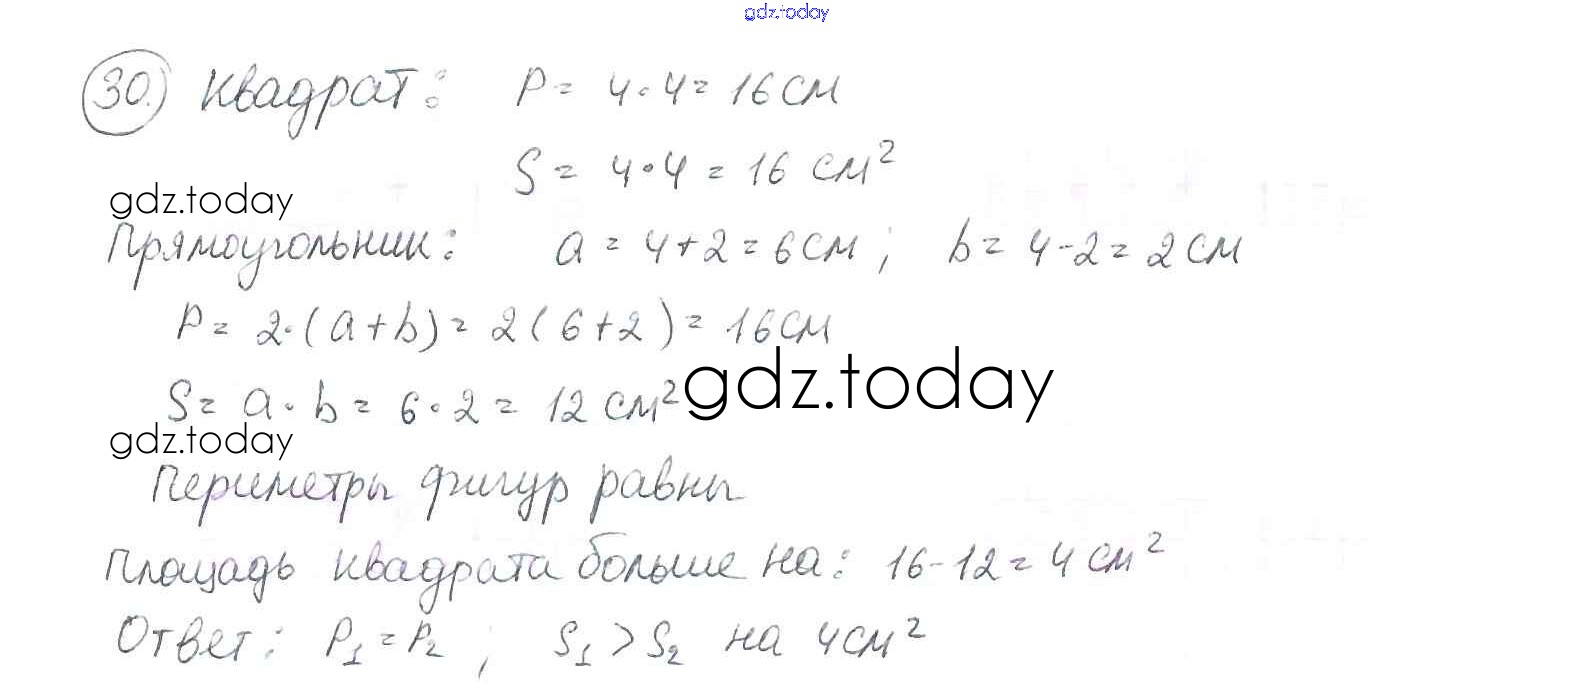 gdz.today
30. Квадрат: P = 4·4 = 16 см
S = 4·4 = 16 см²
gdz.today
Прямоугольник: a = 4+2 = 6 см; b = 4-2 = 2 см
P = 2·(a+b) = 2(6+2) = 16 см
S = a·b = 6·2 = 12 см²
gdz.today
gdz.today
Периметры фигур равны
Площадь квадрата больше на: 16-12 = 4 см²
Ответ: P₁ = P₂; S₁ > S₂ на 4 см²